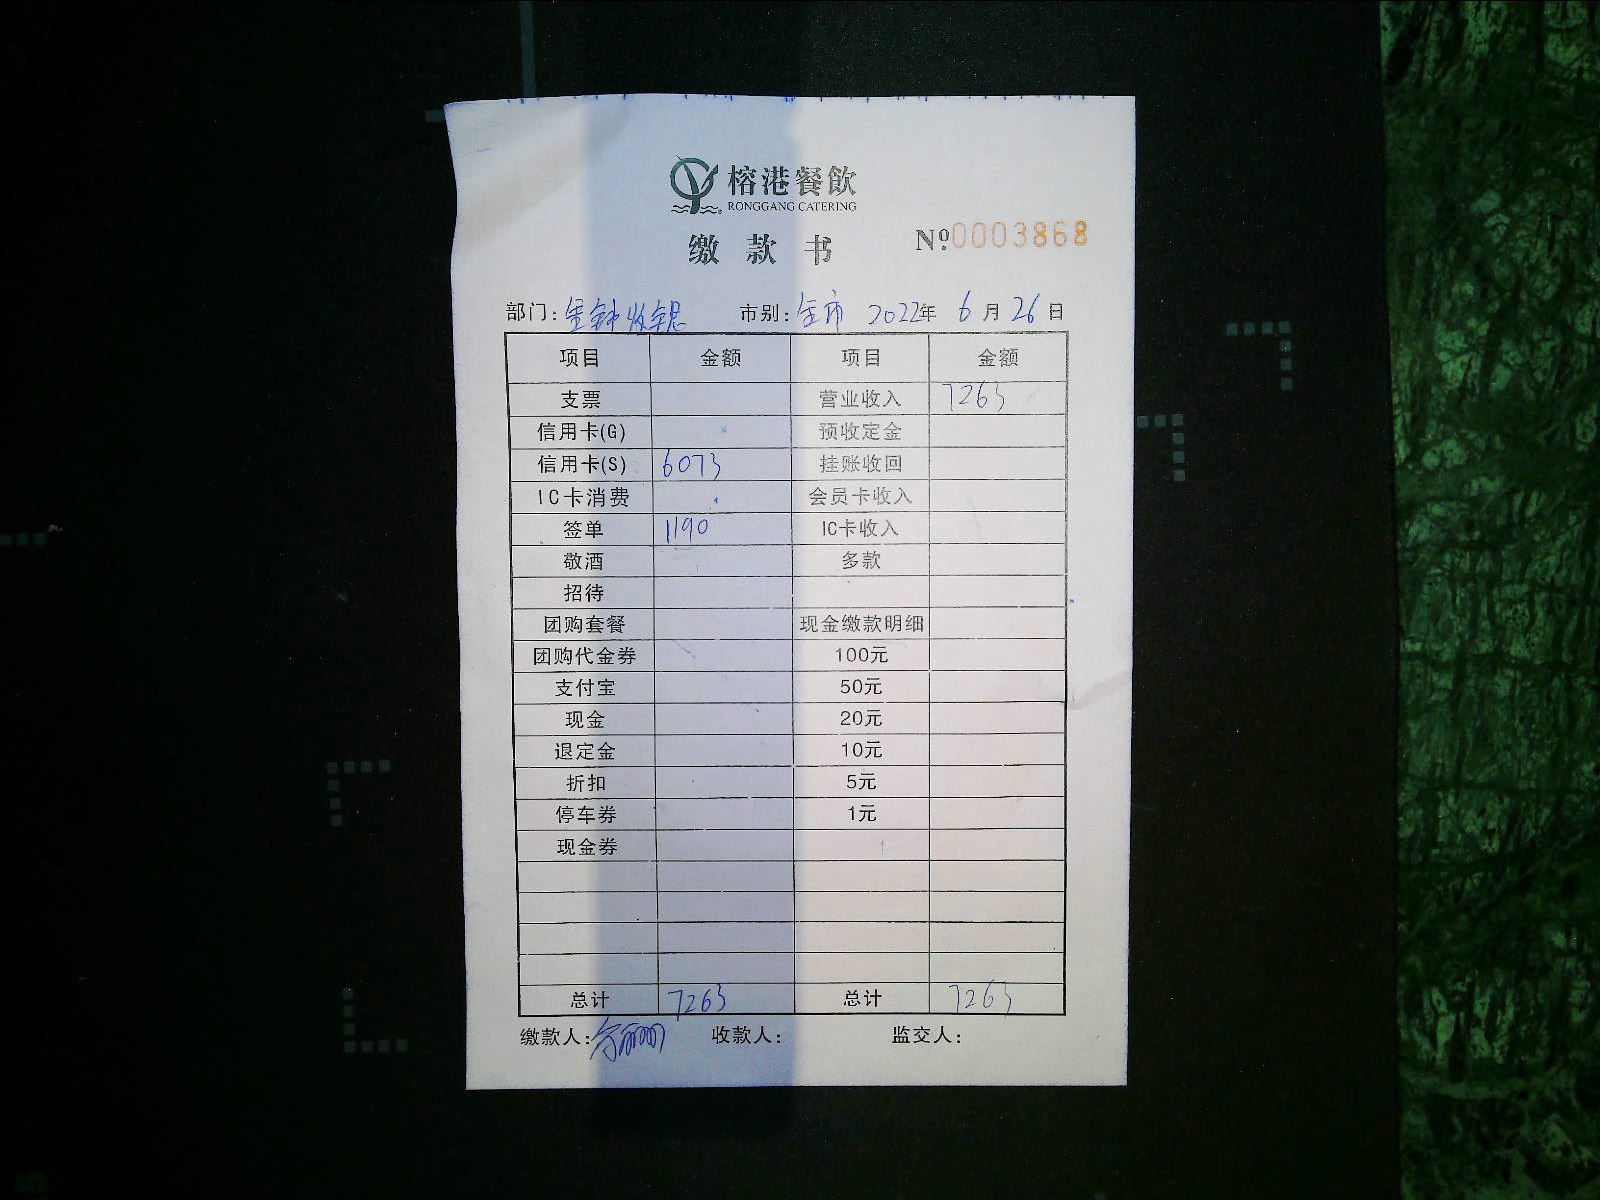 榕港餐飲
RONGGANG CATERING
缴款书 Nº:0003868
部门: 金钟收银 市别: 全市 2022年 6月 26日
项目 金额 项目 金额
支票 营业收入 7263
信用卡(G) 预收定金
信用卡(S) 6073 挂账收回
IC卡消费 会员卡收入
签单 1190 IC卡收入
敬酒 多款
招待
团购套餐 现金缴款明细
团购代金券 100元
支付宝 50元
现金 20元
退定金 10元
折扣 5元
停车券 1元
现金券
总计 7263 总计 7263
缴款人: 收款人: 监交人: